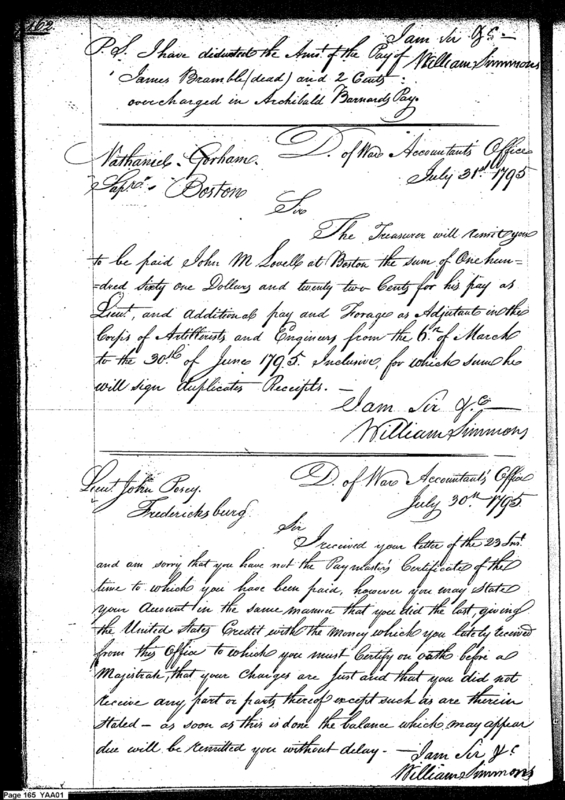 162
I am Sir &c —
P.S. I have deducted the Amt. of the Pay of William Simmons
James Brambl (dead) and 2 Cents
overcharged in Archibald Barnards Pay.
D. of War Accountants Office
July 31st 1795
Nathaniel Gorham.
Supr. Boston
Sir
The Treasurer will remit you
to be paid John M Lovell at Boston the sum of One hun=
=dred sixty one Dollars and twenty two Cents for his pay as
Lieut, and additional pay and Forage as Adjutant in the
Corps of Artillerists and Engineers from the 6th of March
to the 30th of June 1795. Inclusive, for which sum he
will sign duplicates Receipts. —
I am Sir &c —
William Simmons
D. of War Accountants Office
July 30th 1795
Lieut John Posey.
Fredericksburg
Sir
I received your letter of the 23 Inst.
and am sorry that you have not the Paymasters Certificate of the
time to which you have been paid, however you may State
your Amount in the same manner that you did the last, giving
the United States Credit with the money which you lately received
from this Office to which you must Certify on oath before a
Magistrate, that your Charges are Just and that you did not
receive any part or parts thereof except such as are therein
Stated — as soon as this is done the balance which may appear
due will be remitted you without delay. — I am Sir &c
William Simmons
Page 165 YAA01